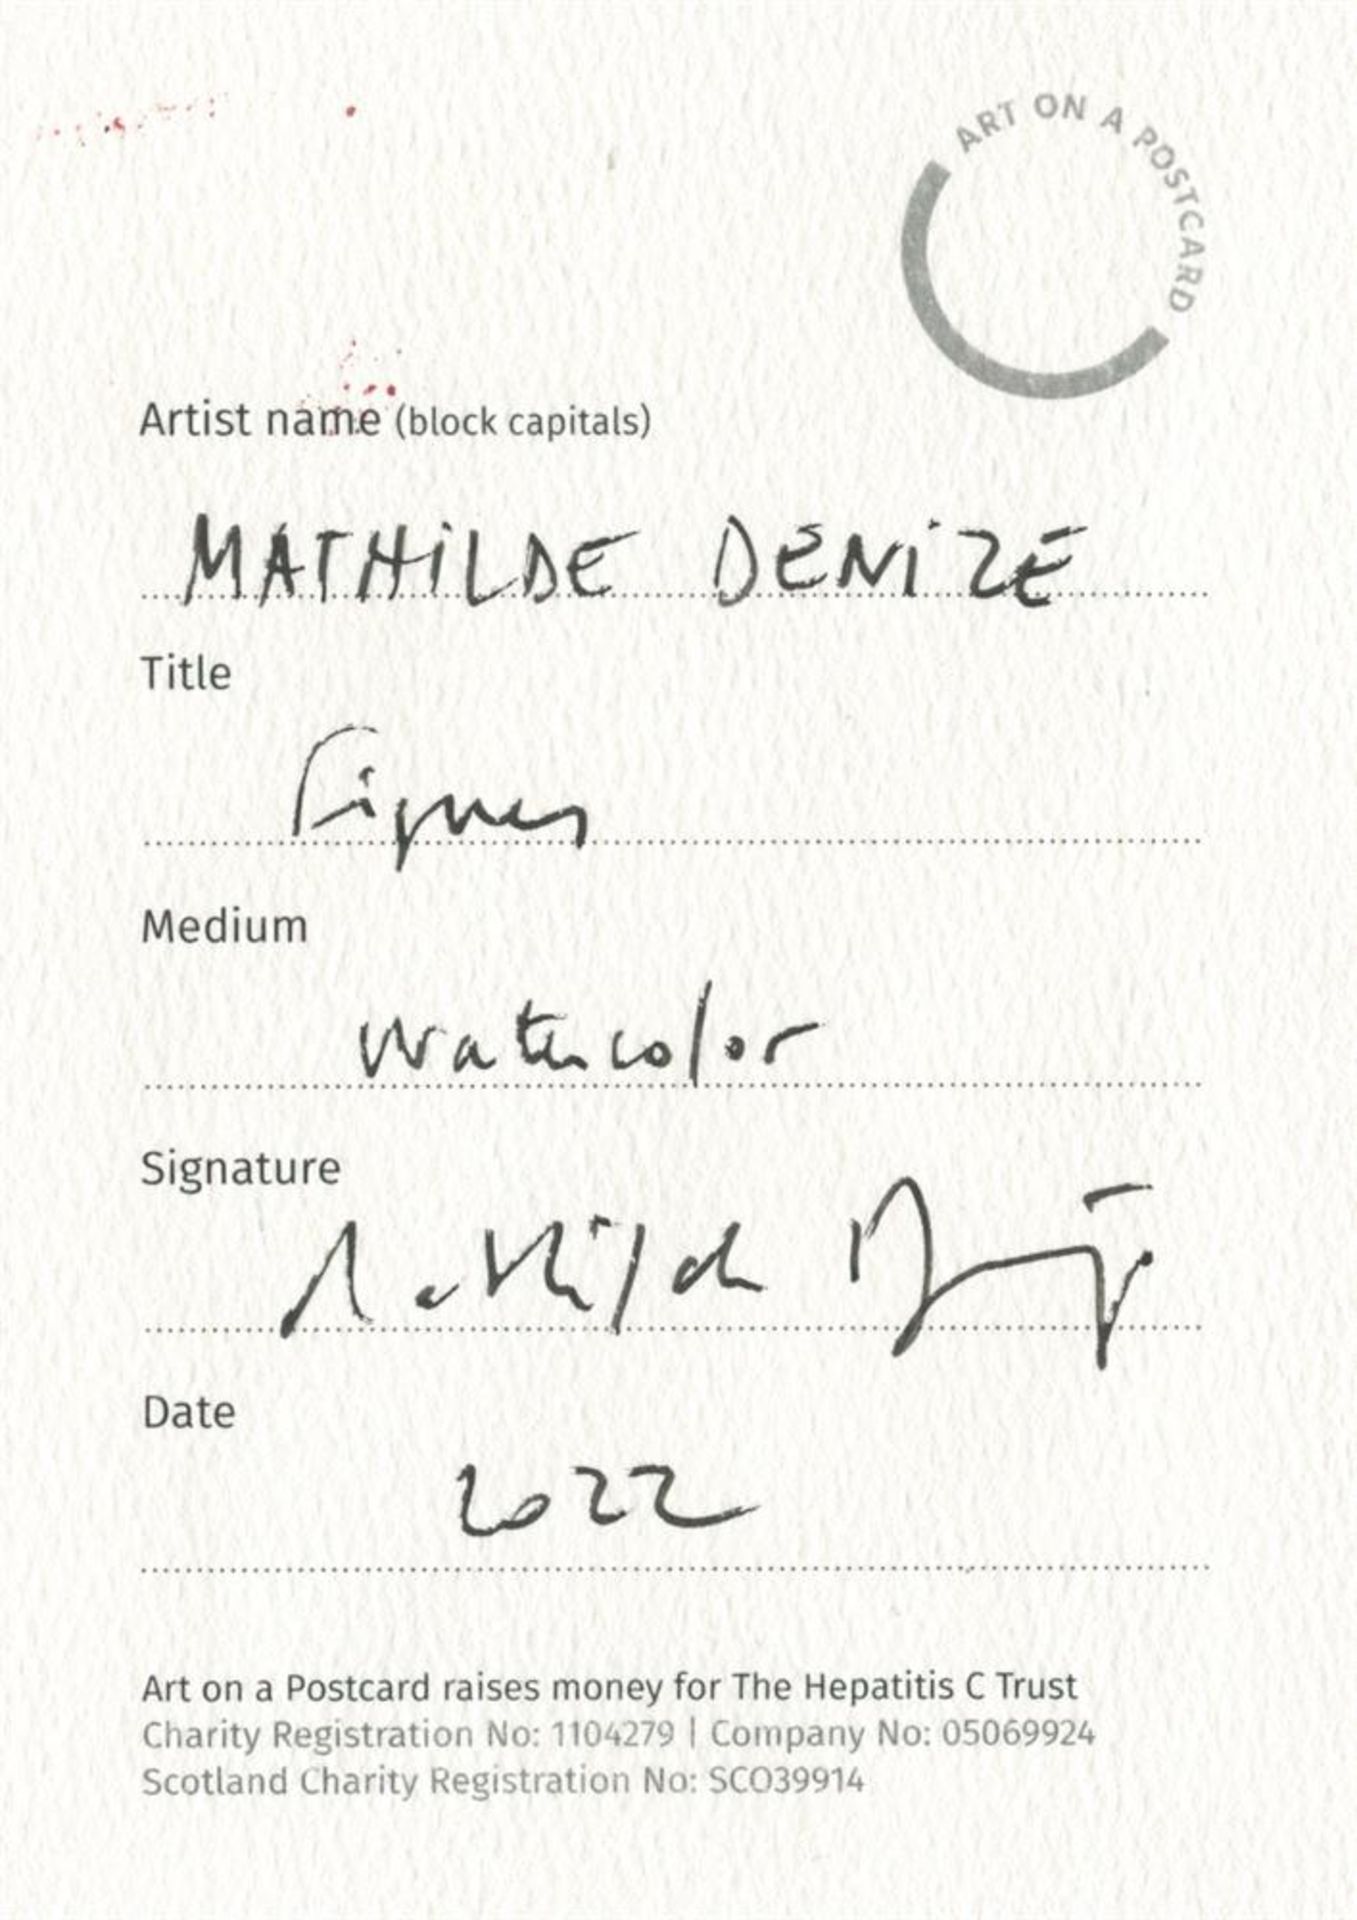 ART ON A POSTCARD
Artist name (block capitals)
MATHILDE DENIZE
Title
Figures
Medium
watercolor
Signature
Mathilde Denize
Date
2022
Art on a Postcard raises money for The Hepatitis C Trust
Charity Registration No: 1104279 | Company No: 05069924
Scotland Charity Registration No: SCO39914